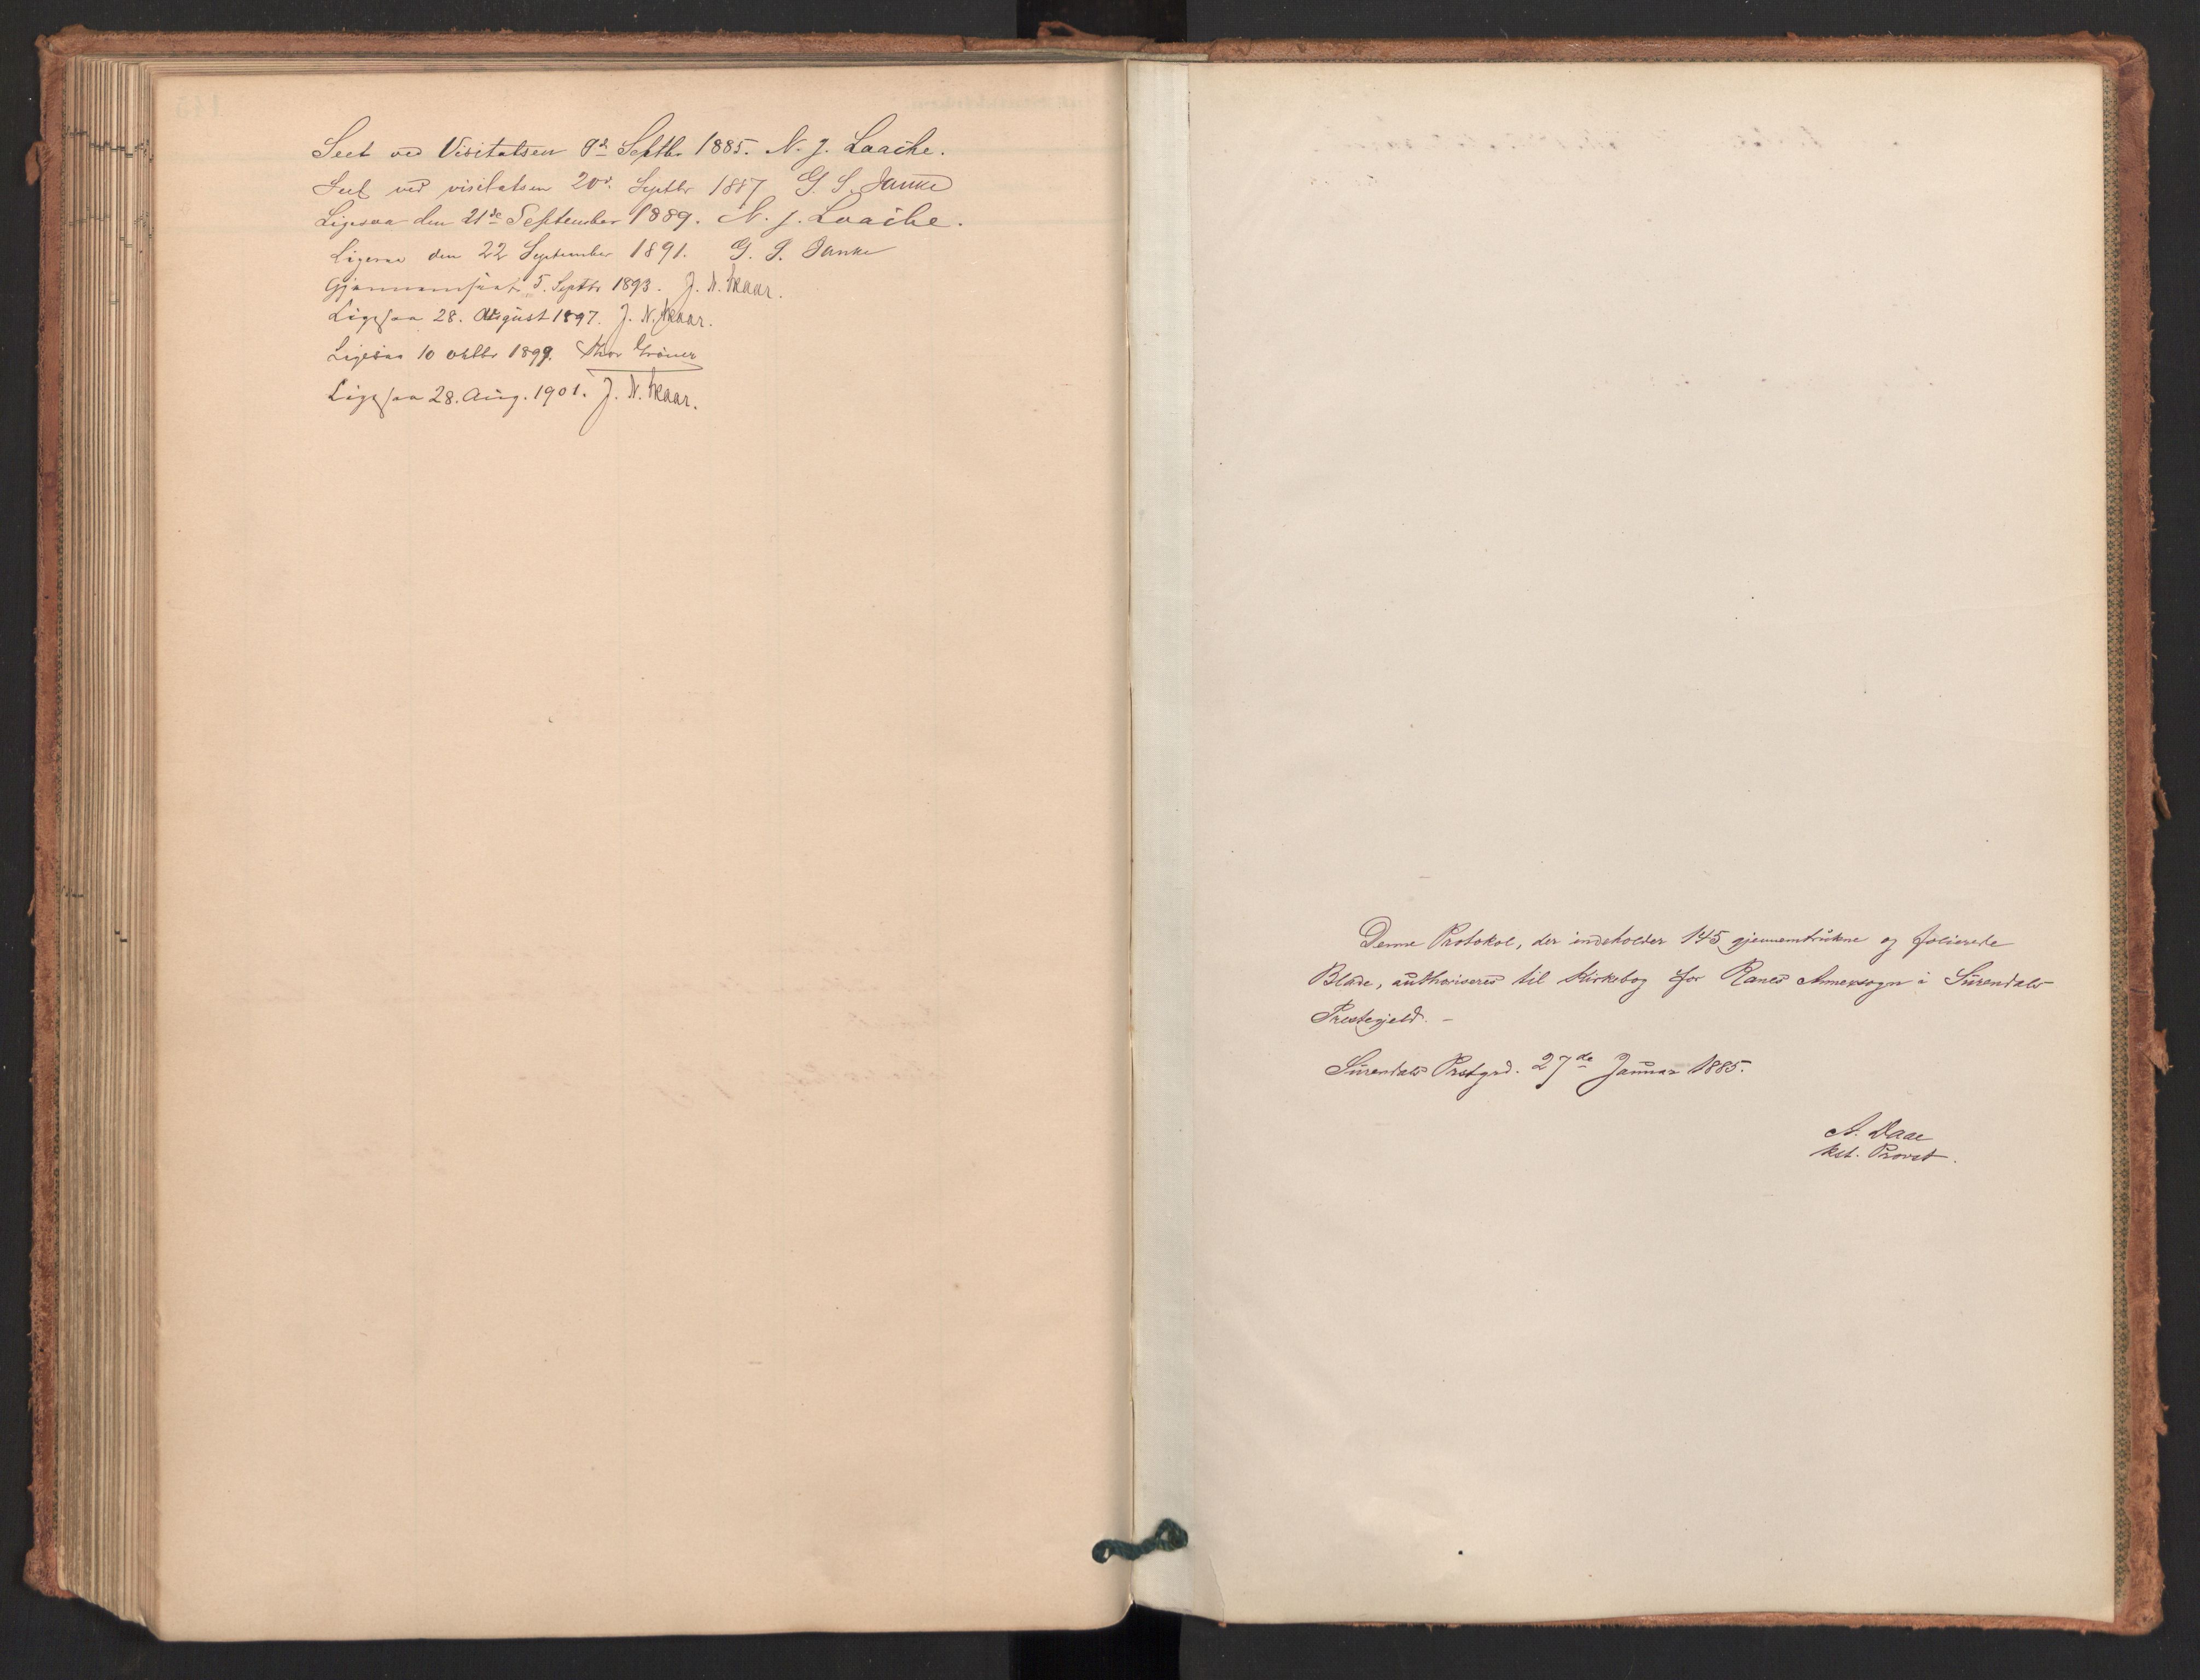 Seet ved Visitatsen 9de Septbr 1885. N. J. Laache.
Seet ved visitatsen 20de Septbr 1887 G. S. Janke
Ligesaa den 21de September 1889. N. J. Laache.
Ligesaa den 22 September 1891. G. S. Janke
Gjennemseet 5. Septbr 1893. J. N. Skaar.
Ligesaa 28. August 1897. J. N. Skaar.
Ligesaa 10 oktbr 1899. Thor Gröner
Ligesaa 28. Aug. 1901. J. N. Skaar.
Denne Protokol, der indeholder 145 gjennemtrukne og folierede
Blade, authoriseres til Kirkebog for Ranes Annexsogn i Surendals
Prestegjeld. –
Surendals Prstgrd. 27de Januar 1885.
A. Daae
kst. Provst.